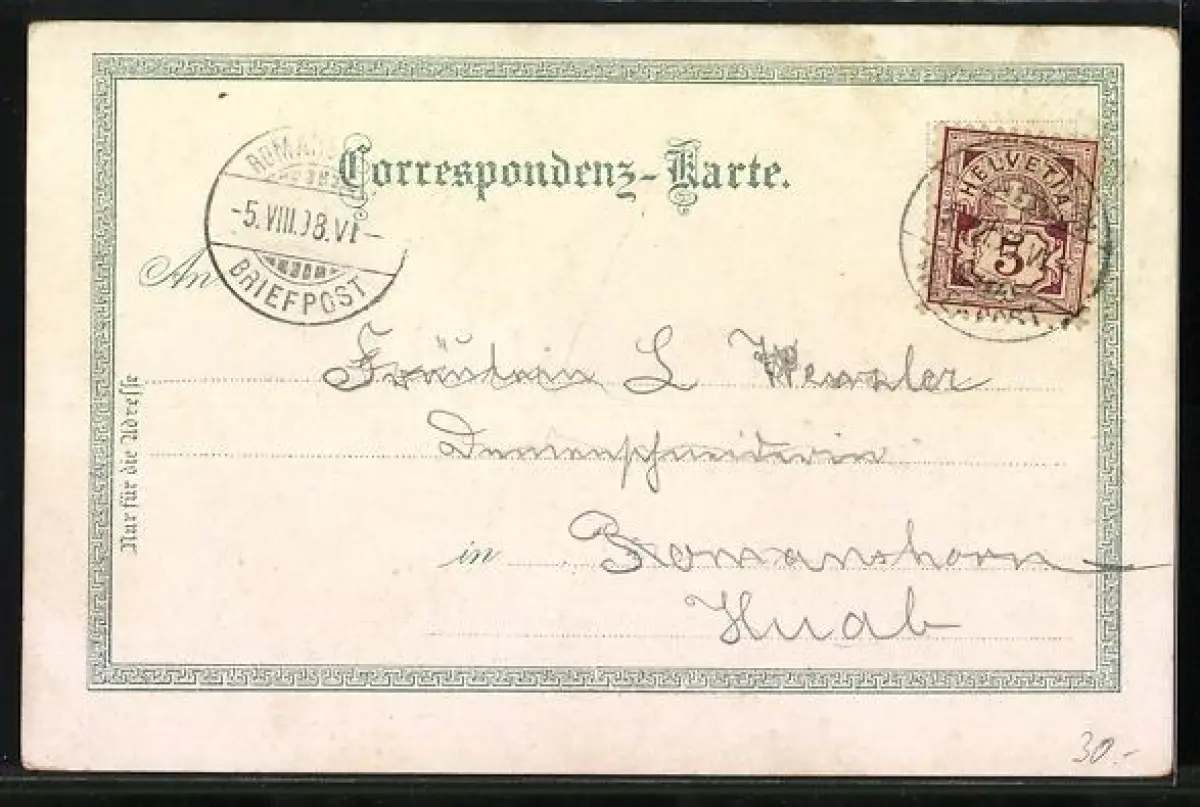 Correspondenz-Karte.
ROMANS
-5.VIII.98.VI-
BRIEFPOST
HELVETIA
5
An
Fräulein L
Damenschneiderin
in Romanshorn
Huab
Nur für die Adresse
30.-